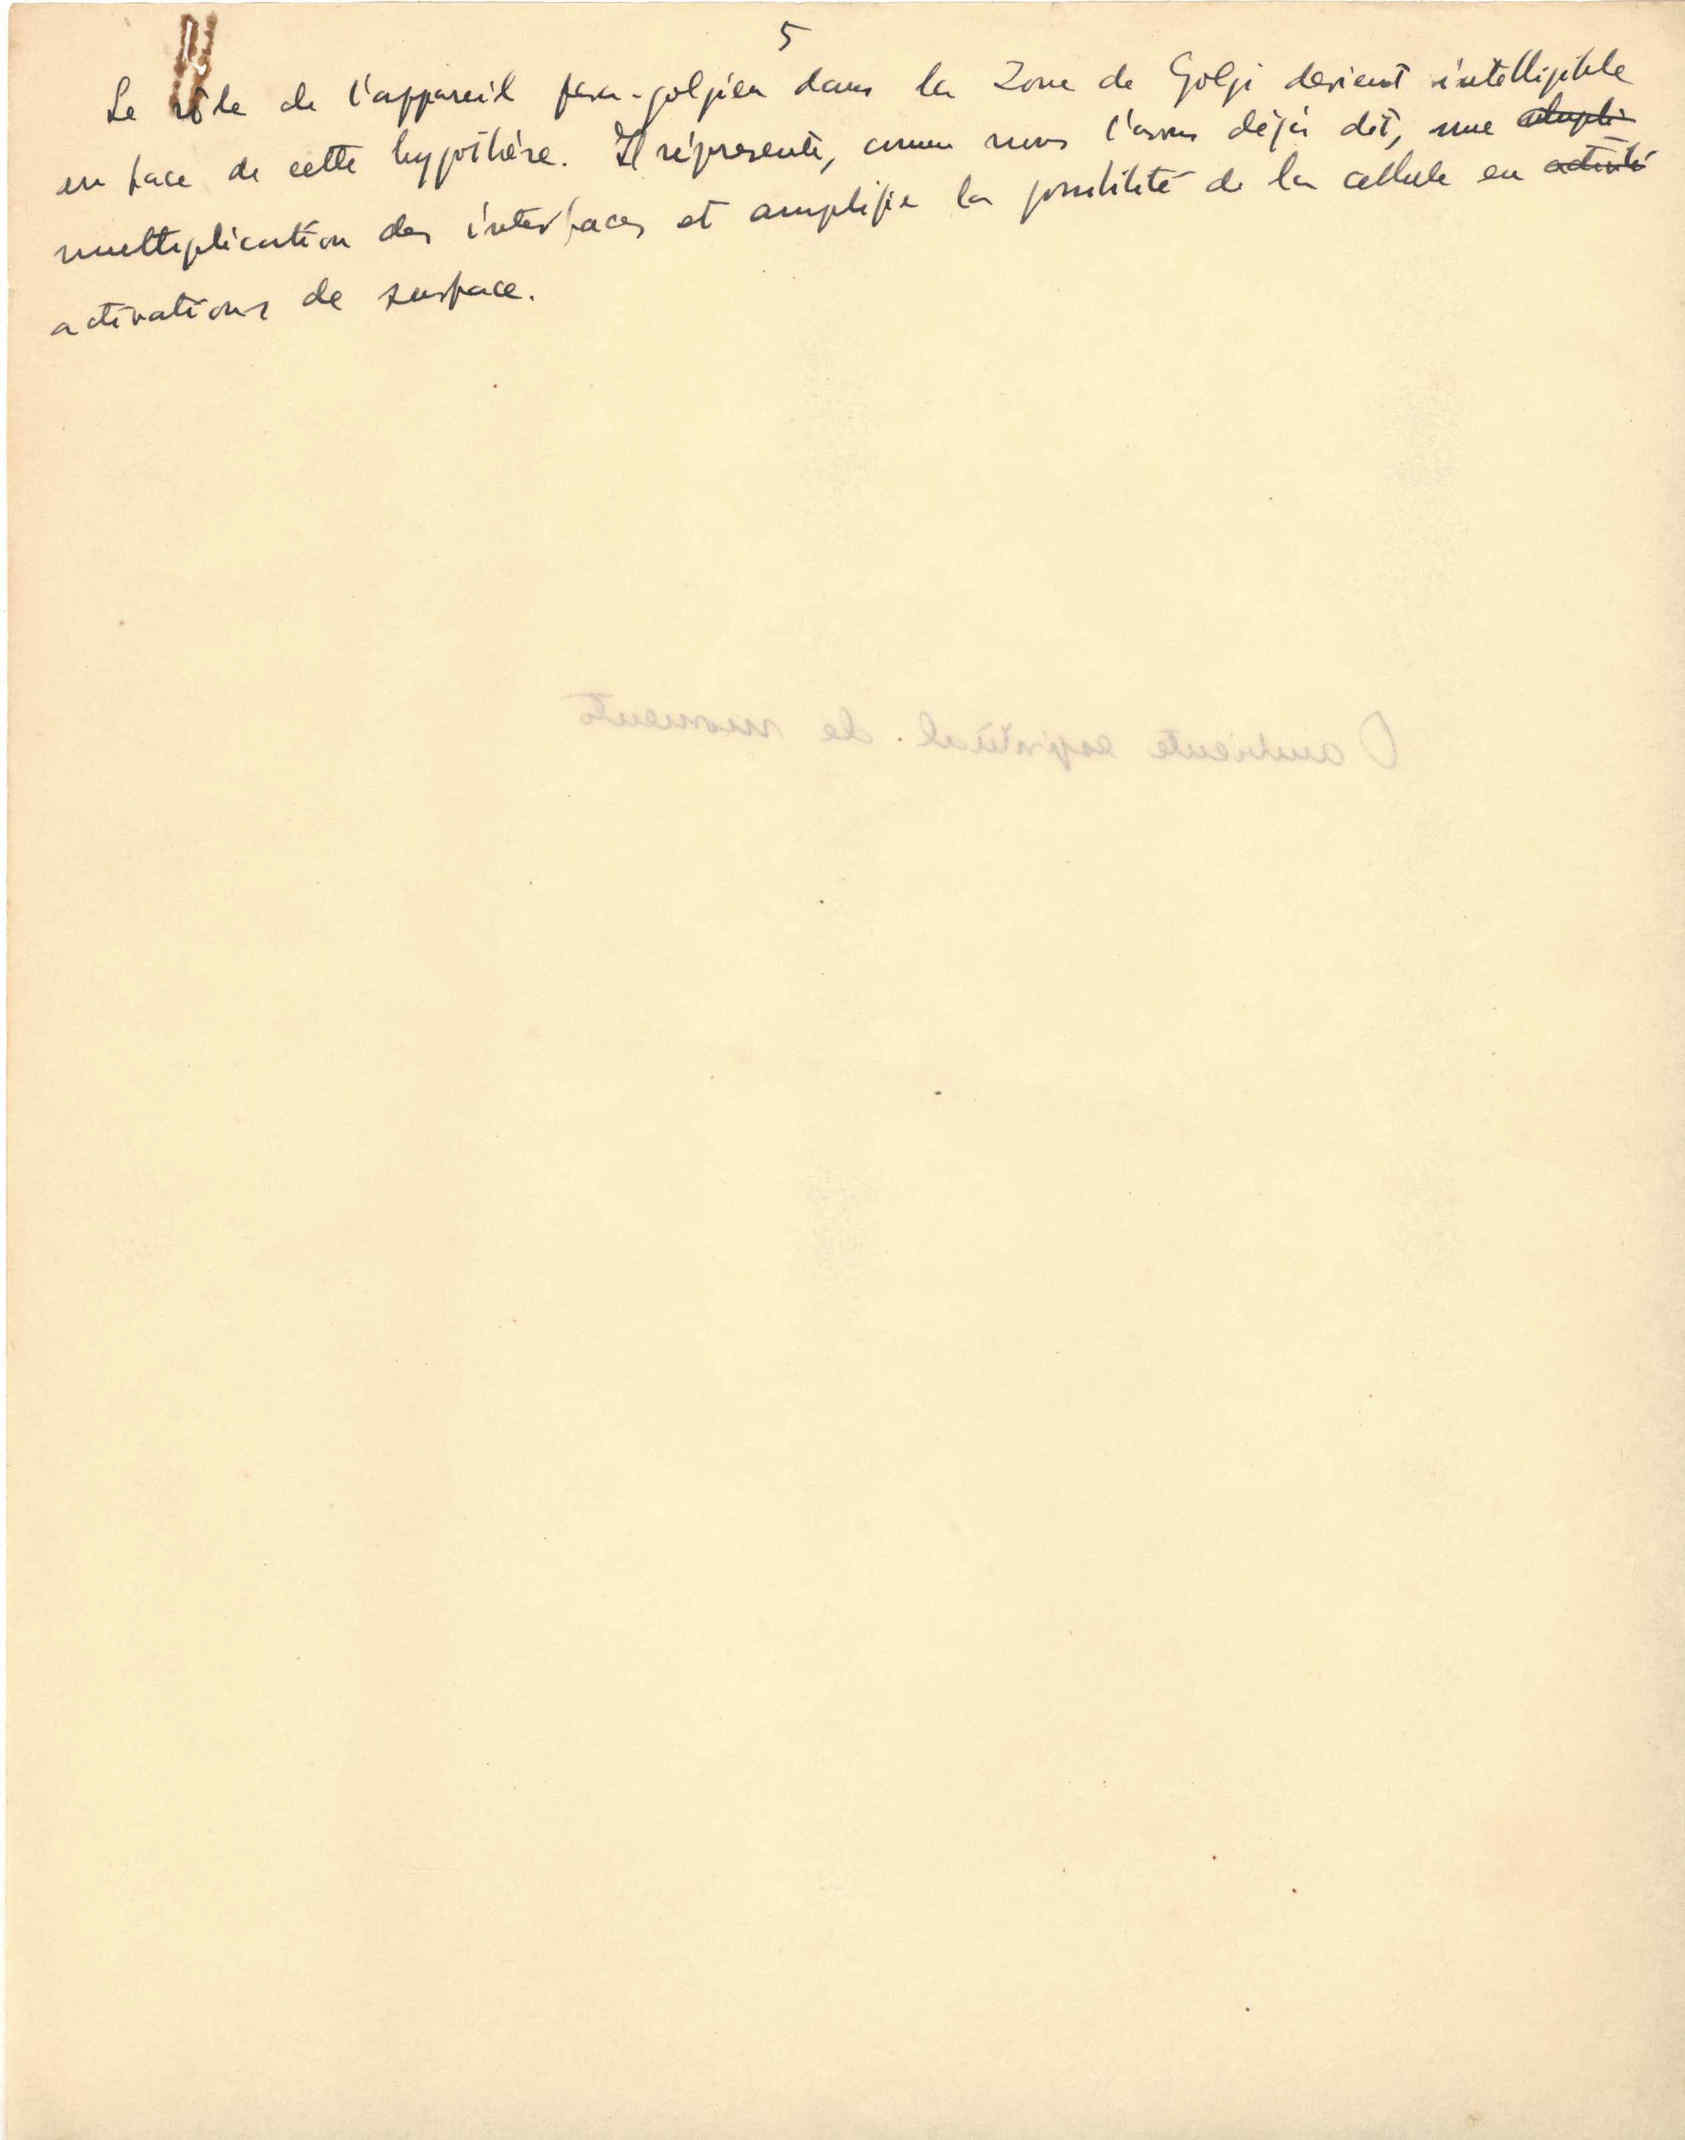 5
Le rôle de l'appareil para-golgien dans la Zone de Golgi devient intelligible
en face de cette hypothèse. Il réprésente, comme nous l'avons déjà dit, une ampli-
multiplication des interfaces et amplifie la possibilité de la cellule en activité
activations de surface.
O ambiente espiritual de momento